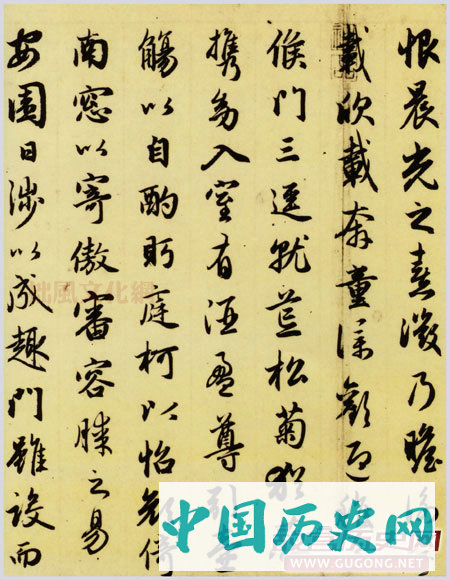 恨晨光之熹微乃瞻
載欣載奔童僕歡迎
候門三逕就荒松菊猶
携幼入室有酒盈尊
觴以自酌眄庭柯以怡顔倚
南窓以寄傲審容膝之易
安園日涉以成趣門雖設而
中国历史网
WWW.GUGONG.NET